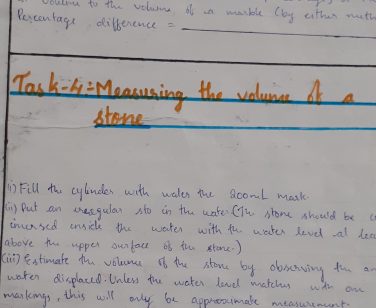 volume to the volume of a marble (by either meth
Percentage difference =
Task-4:- Measuring the volume of a
stone
(i) Fill the cylinder with water the 200mL mark.
(ii) Put an irregular sto in the water (The stone should be c
immersed inside the water with the water level at lea
above the upper surface of the stone.)
(iii) Estimate the volume of the stone by observing the am
water displaced. Unless the water level matches with one
markings, this will only be approximate measurement.